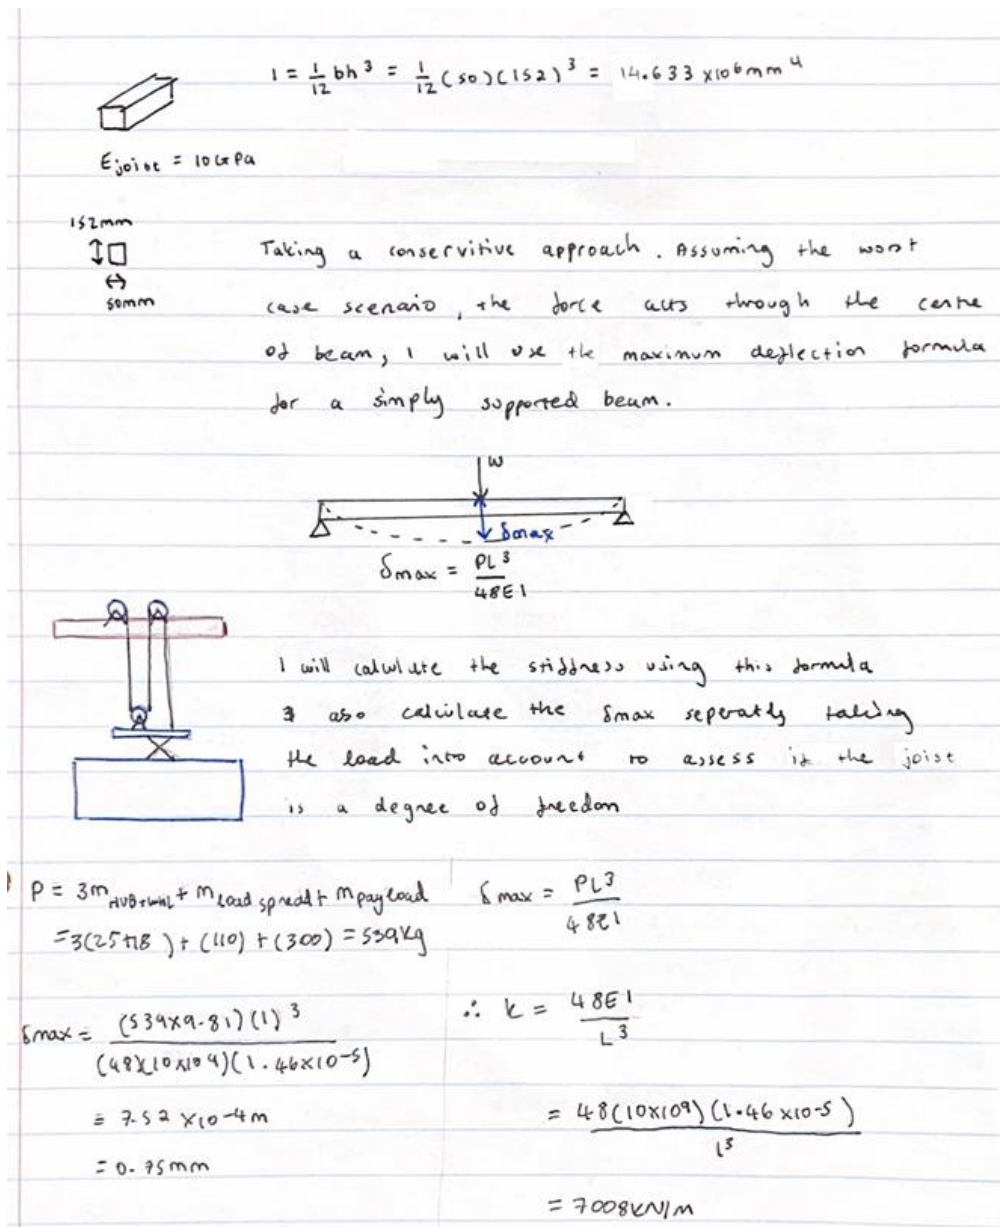 I = 1/12 bh³ = 1/12 (50)(152)³ = 14.633 x10⁶mm⁴
E joist = 10GPa
152mm
50mm
Taking a conservitive approach. Assuming the worst
case scenario, the force acts through the centre
of beam, I will use the maximum deflection formula
for a simply supported beam.
W
δmax
δmax = PL³/48EI
I will calculate the stiffness using this formula
& also calculate the δmax seperatly taking
the load into account to assess if the joist
is a degree of freedom
P = 3m HUB+WHL + m load spread + m payload
=3(25+18) + (110) + (300) = 539kg
δmax = PL³/48EI
δmax = (539x9.81)(1)³/(48)(10x10⁹)(1.46x10⁻⁵)
= 7.52 x10⁻⁴m
= 0.75mm
∴ k = 48EI/L³
= 48(10x10⁹)(1.46x10⁻⁵)/1³
= 7008kN/m